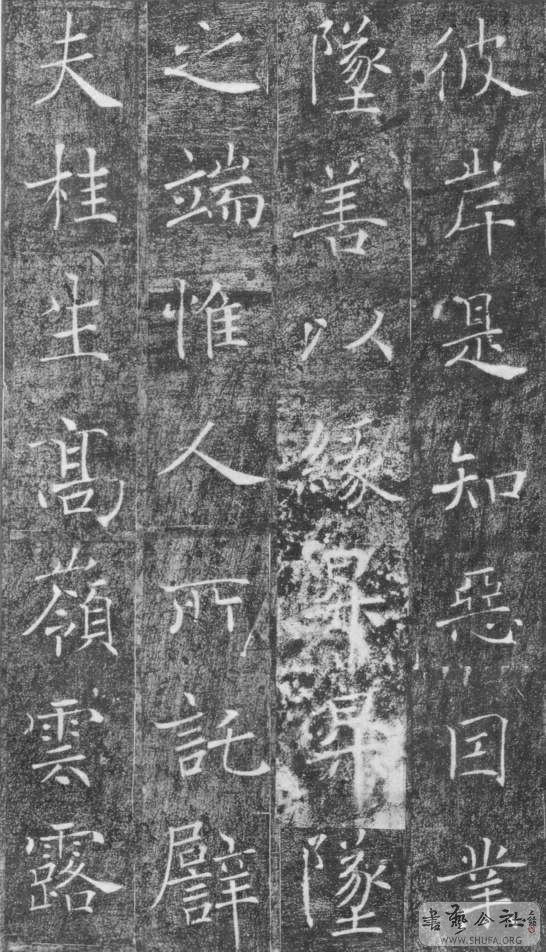 彼岸是知惡囙業
墜善以緣昇昇墜
之端惟人所託譬
夫桂生髙嶺雲露
書藝公社
WWW.SHUFA.ORG